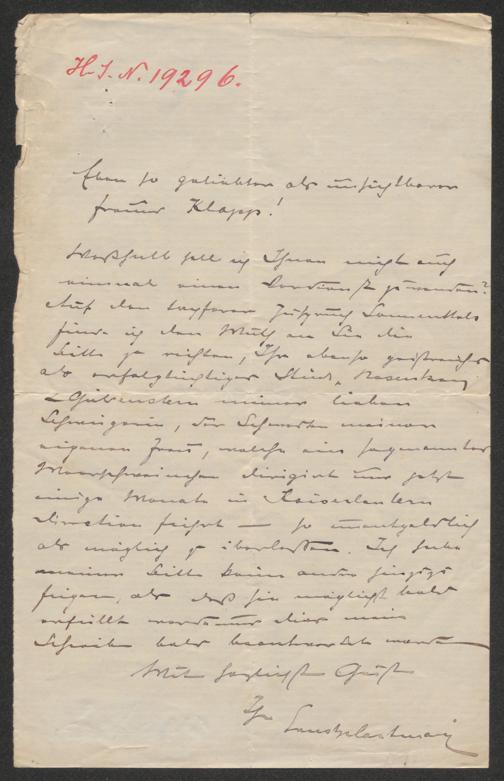 H. I. N. 19296.
Eben so geliebter als unsichtbarer
Freund Klapp!
Weßhalb soll ich Ihnen nicht auch
einmal einen
Auf den tapferen Zuspruch Sonnenthals
finde ich den Muth an Sie die
Bitte zu richten, Ihr ebenso geistreiches
als erfolgtüchtiges Stück „Rosenkranz
& Güldenstern meiner lieben
Schwägerin, der Schwester meiner
eigenen Frau, welche ein sogenanntes
Meerschweinchen dirigirt und jetzt
einige Monate in Kaiserslautern
Direction führt — so unentgeldlich
als möglich zu überlassen. Ich habe
meiner Bitte keine andre
fügen, als daß sie möglichst bald
erfüllt werde und dies mein
Schreiben bald beantwortet werde
Mit herzlichst Gruß
Ihr